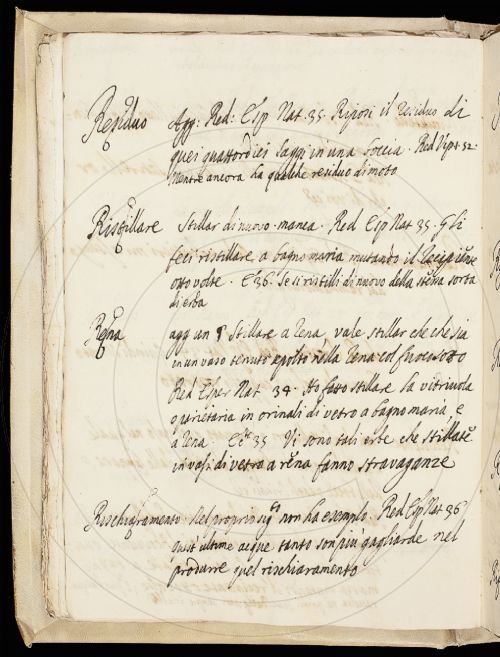 Residuo Agg: Red: Esp Nat. 35. Riposi il residuo di
quei quattordici saggi in una boccia. Red Vip: 1. 32:
mentre ancora ha qualche residuo di moto
Ristillare Stillar di nuovo. manca. Red Esp Nat 35. gli
feci ristillare a bagno maria mutando il
otto volte. E 36. Se si ristilli di nuovo della stessa sorta
di erba
Rena agg un § Stillare a Rena vale stillar che che sia
in un vaso tenuto sepolto nella Rena col fuoco sotto
Red Esper Nat 34. Ho fatto stillare la vitriuola
o parietaria in orinali di vetro a bagno maria, e
a rena. E 35 Vi sono tali erbe che stillate
in vasi di vetro a rena fanno stravaganze
Rischiaramento. Nel proprio sig.to non ha esempio. Red Esp Nat 36
Quest ultime acque tanto son più gagliarde nel
produrre quel rischiaramento